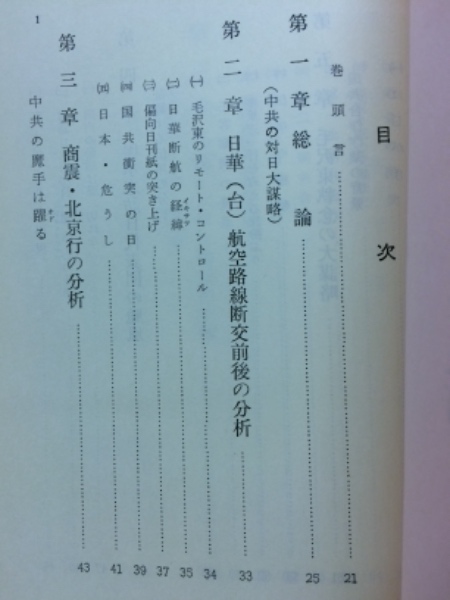 目次
巻頭言 21
第一章 総論 25
(中共の対日大謀略)
第二章 日華(台)航空路線断交前後の分析 33
(一) 毛沢東のリモート・コントロール 34
(二) 日華断航の経緯 イキサツ 35
(三) 偏向日刊紙の突き上げ 37
(四) 国共衝突の日 39
(五) 日本・危うし 41
第三章 商震・北京行の分析 43
中共の魔手は躍る オド
1